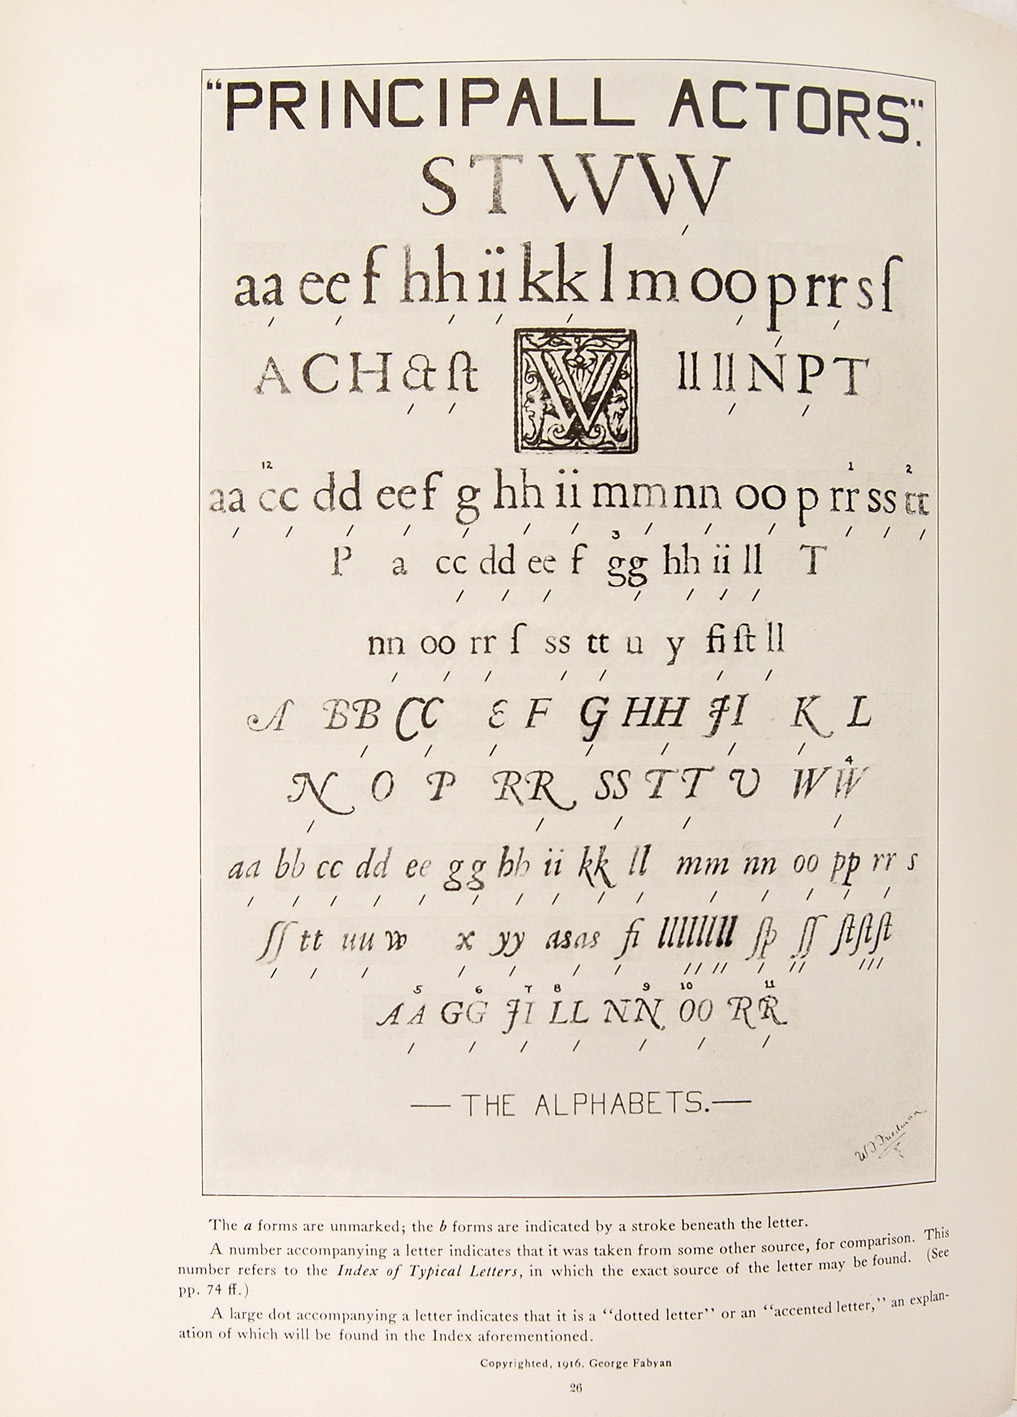 "PRINCIPALL ACTORS".
S T W W
aa ee f hh ii kk l m oo p rr s ſ
A C H & ſt W ll ll N P T
12 1 2
aa cc dd ee f g hh ii mm nn oo p rr ss tt
3
P a cc dd ee f gg hh ii ll T
nn oo rr ſ ss tt u y fi ſt ll
A BB CC E F G HH JI K L
4
N O P RR SS TT U WW
aa bb cc dd ee gg hh ii kk ll mm nn oo pp rr s
ſſ tt uu w x yy asas fi llllllll ſp ſſ ſtſtſt
5 6 7 8 9 10 11
AA GG JI LL NN OO RR
— THE ALPHABETS. —
W F Friedman
The a forms are unmarked; the b forms are indicated by a stroke beneath the letter.
A number accompanying a letter indicates that it was taken from some other source, for comparison. This
number refers to the Index of Typical Letters, in which the exact source of the letter may be found. (See
pp. 74 ff.)
A large dot accompanying a letter indicates that it is a "dotted letter" or an "accented letter," an explan-
ation of which will be found in the Index aforementioned.
Copyrighted, 1916, George Fabyan
26